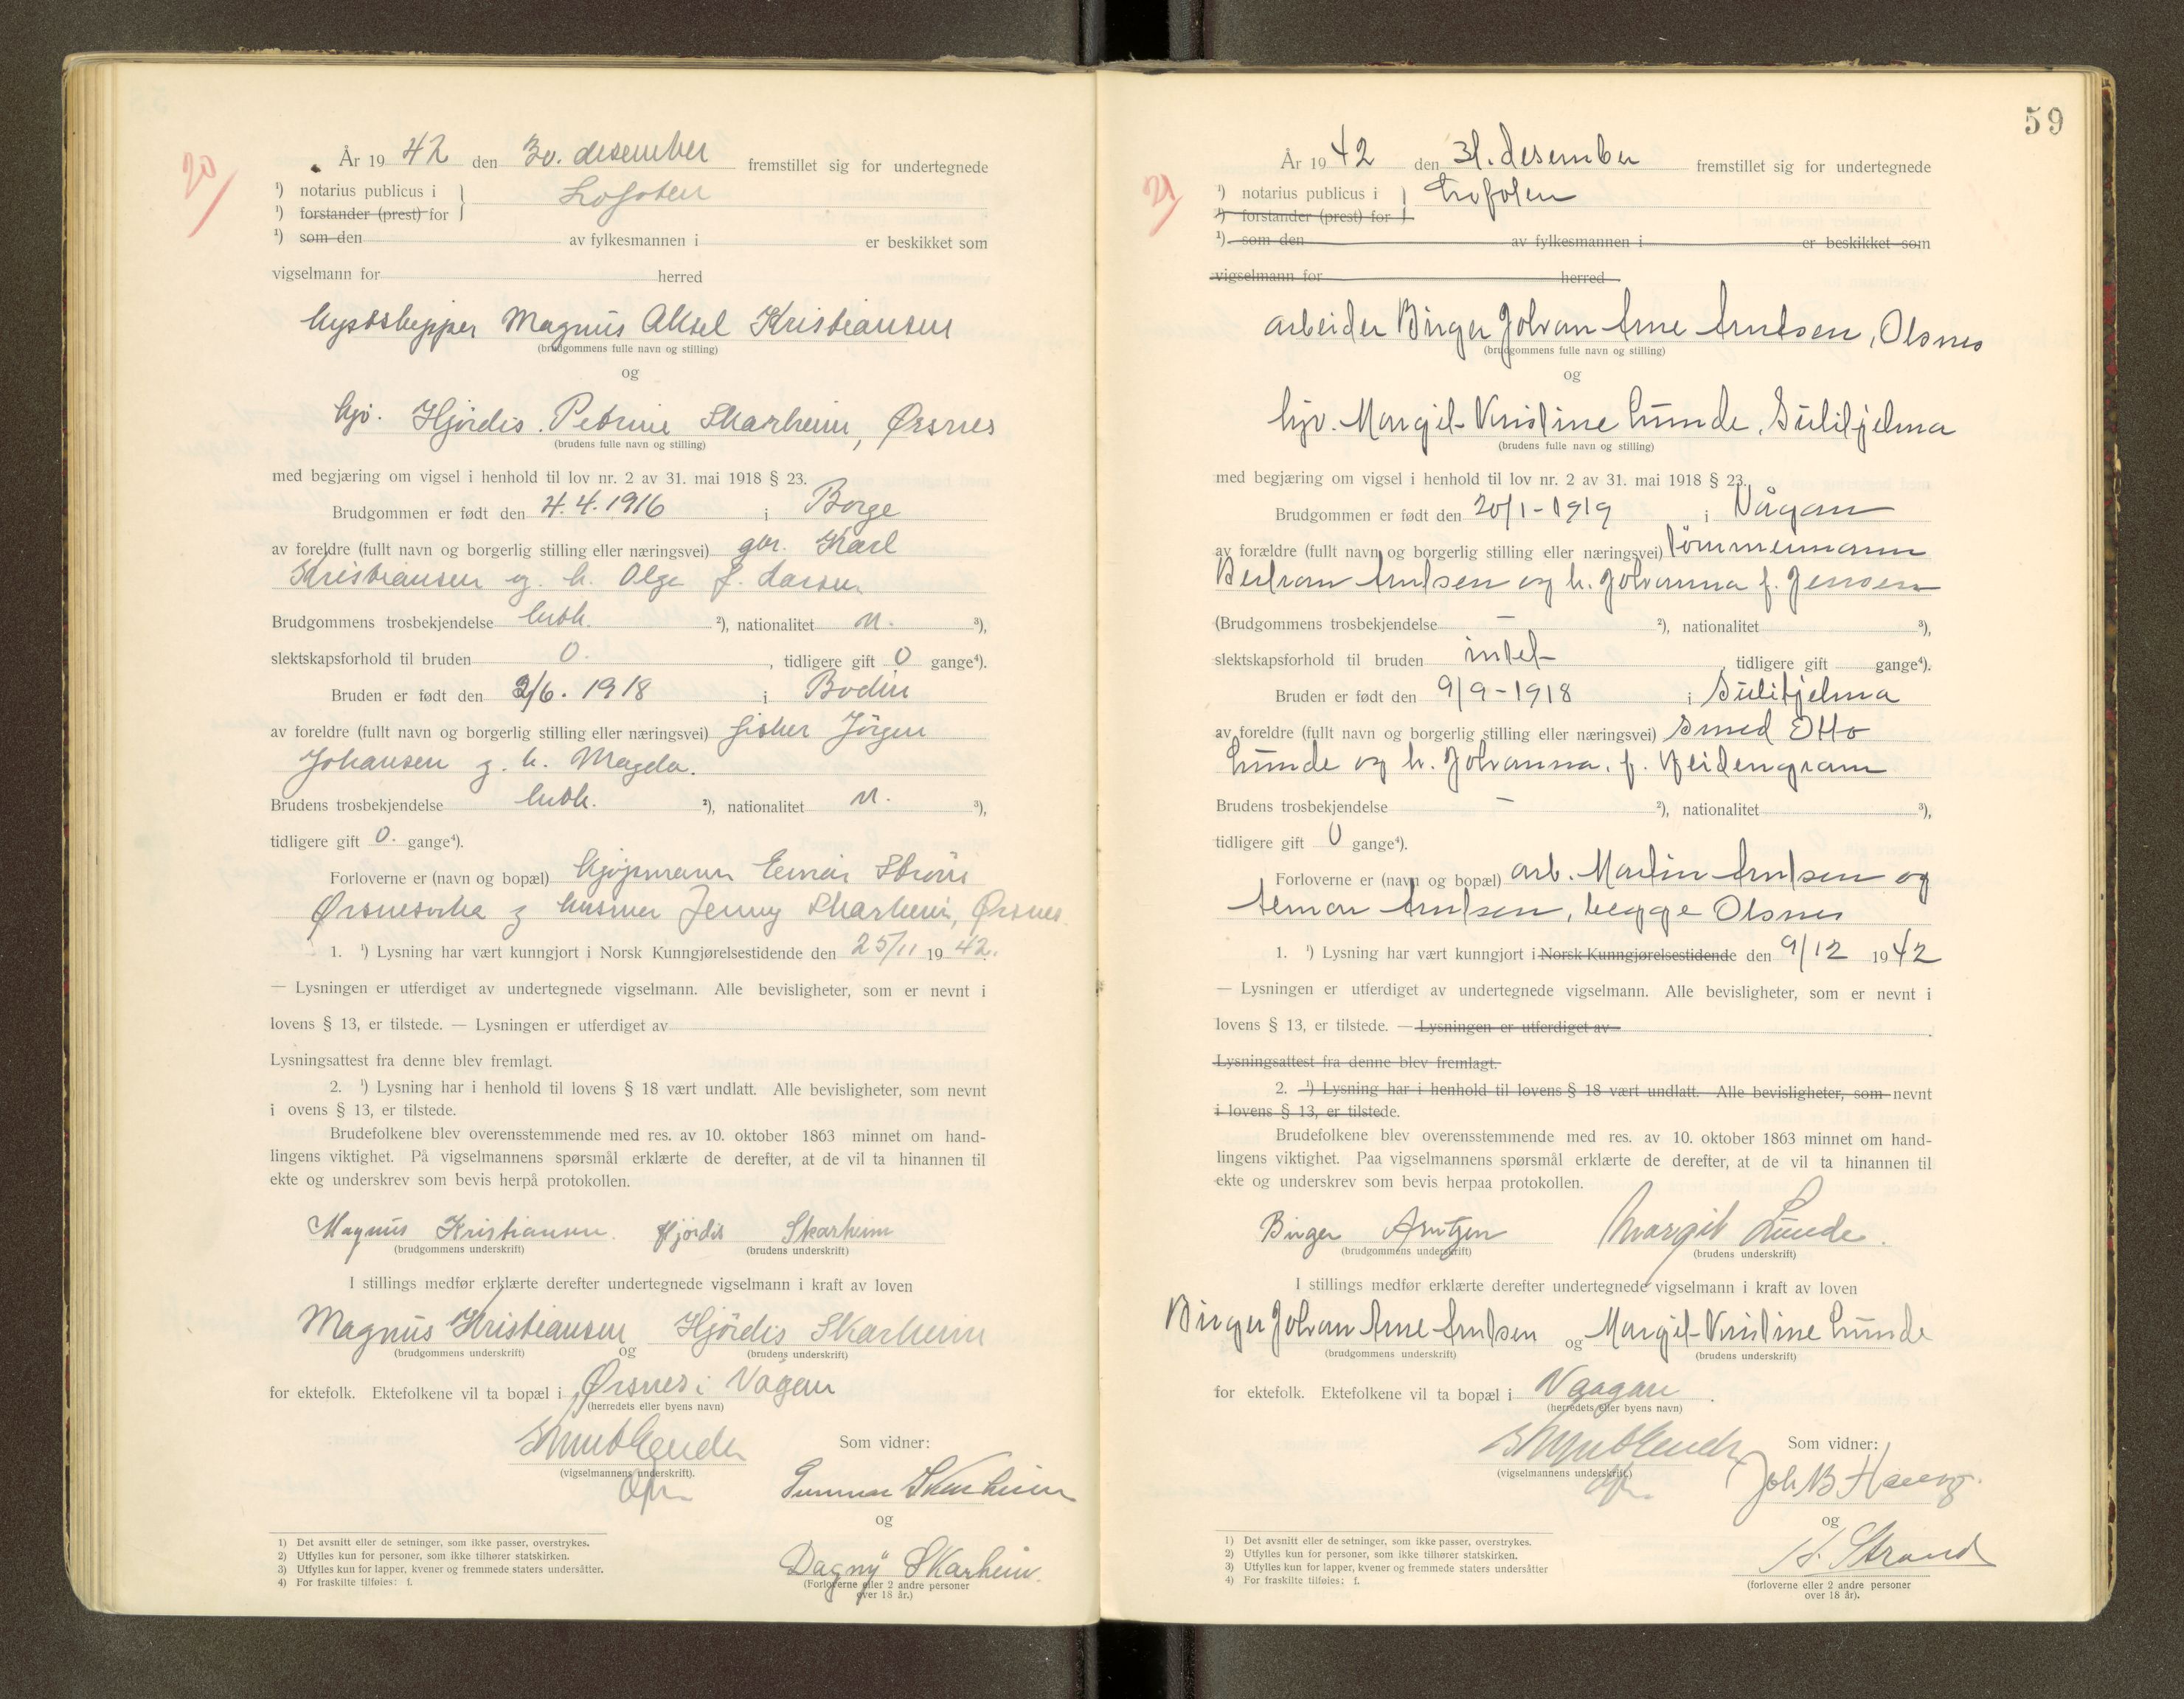 20
År 1942 den 30. desember fremstillet sig for undertegnede
¹) notarius publicus i } Lofoten
¹) forstander (prest) for
¹) som den av fylkesmannen i er beskikket som
vigselmann for herred
kystskipper Magnus Aksel Kristiansen
(brudgommens fulle navn og stilling)
og
hjv. Hjørdis Petrine Skarheim, Ørsnes
(brudens fulle navn og stilling)
med begjæring om vigsel i henhold til lov nr. 2 av 31. mai 1918 § 23.
Brudgommen er født den 4.4.1916 i Borge
av foreldre (fullt navn og borgerlig stilling eller næringsvei) gbr. Karl
Kristiansen og h. Olga f. Larsen
Brudgommens trosbekjendelse luth. ²), nationalitet n. ³),
slektskapsforhold til bruden 0. , tidligere gift 0 gange⁴).
Bruden er født den 2/6. 1918 i Bodin
av foreldre (fullt navn og borgerlig stilling eller næringsvei) fisker Jörgen
Johansen og h. Magda.
Brudens trosbekjendelse luth. ²), nationalitet n. ³),
tidligere gift 0. gange⁴).
Forloverne er (navn og bopæl) kjøpmann Einar Ström
Ørsnesvika og husmor Jenny Skarheim, Ørsnes
1. ¹) Lysning har vært kunngjort i Norsk Kunngjørelsestidende den 25/11 1942.
— Lysningen er utferdiget av undertegnede vigselmann. Alle bevisligheter, som er nevnt i
lovens § 13, er tilstede. — Lysningen er utferdiget av
Lysningsattest fra denne blev fremlagt.
2. ¹) Lysning har i henhold til lovens § 18 vært undlatt. Alle bevisligheter, som nevnt
i ovens § 13, er tilstede.
Brudefolkene blev overensstemmende med res. av 10. oktober 1863 minnet om hand-
lingens viktighet. På vigselmannens spørsmål erklærte de derefter, at de vil ta hinannen til
ekte og underskrev som bevis herpå protokollen.
Magnus Kristiansen. Hjördis Skarheim
(brudgommens underskrift) (brudens underskrift)
I stillings medfør erklærte derefter undertegnede vigselmann i kraft av loven
Magnus Kristiansen og Hjördis Skarheim
(brudgommens underskrift) (brudens underskrift)
for ektefolk. Ektefolkene vil ta bopæl i Ørsnes i Vågan
(herredets eller byens navn)
Som vidner:
(vigselmannens underskrift).
Gunnar Skarheim
og
Dagny Skarheim.
(Forloverne eller 2 andre personer
over 18 år.)
1) Det avsnitt eller de setninger, som ikke passer, overstrykes.
2) Utfylles kun for personer, som ikke tilhører statskirken.
3) Utfylles kun for lapper, kvener og fremmede staters undersåtter.
4) For fraskilte tilføies: f.
59
21
År 1942 den 31. desember fremstillet sig for undertegnede
¹) notarius publicus i } Lofoten
¹) forstander (prest) for
¹) som den av fylkesmannen i er beskikket som
vigselmann for herred
arbeider Birger Johan Arne Arntsen, Olsnes
(brudgommens fulle navn og stilling)
og
hjv. Margit Kristine Lunde, Sulitjelma
(brudens fulle navn og stilling)
med begjæring om vigsel i henhold til lov nr. 2 av 31. mai 1918 § 23.
Brudgommen er født den 20/1-1919 i Vågan
av forældre (fullt navn og borgerlig stilling eller næringsvei) tömmermann
Bertram Arntsen og h. Johanna f. Jensen
(Brudgommens trosbekjendelse — ²), nationalitet ³),
slektskapsforhold til bruden intet , tidligere gift gange⁴).
Bruden er født den 9/9-1918 i Sulitjelma
av foreldre (fullt navn og borgerlig stilling eller næringsvei) smed Otto
Lunde og h. Johanna, f.
Brudens trosbekjendelse — ²), nationalitet ³),
tidligere gift 0 gange⁴).
Forloverne er (navn og bopæl) arb. Martin Arntsen og
Arntsen, begge Olsnes
1. ¹) Lysning har vært kunngjort i Norsk Kunngjørelsestidende den 9/12 1942
— Lysningen er utferdiget av undertegnede vigselmann. Alle bevisligheter, som er nevnt i
lovens § 13, er tilstede. — Lysningen er utferdiget av
Lysningsattest fra denne blev fremlagt.
2. ¹) Lysning har i henhold til lovens § 18 vært undlatt. Alle bevisligheter, som nevnt
i lovens § 13, er tilstede.
Brudefolkene blev overensstemmende med res. av 10. oktober 1863 minnet om hand-
lingens viktighet. Paa vigselmannens spørsmål erklærte de derefter, at de vil ta hinannen til
ekte og underskrev som bevis herpaa protokollen.
Birger Arntzen Margit Lunde.
(brudgommens underskrift) (brudens underskrift)
I stillings medfør erklærte derefter undertegnede vigselmann i kraft av loven
Birger Johan Arne Arntsen og Margit Kristine Lunde
(brudgommens underskrift) (brudens underskrift)
for ektefolk. Ektefolkene vil ta bopæl i Vaagan .
(herredets eller byens navn)
Som vidner:
(vigselmannens underskrift.)
Joh B Haug.
og
Strand
(forloverne eller 2 andre personer
over 18 år).
1) Det avsnitt eller de setninger, som ikke passer, overstrykes.
2) Utfylles kun for personer, som ikke tilhører statskirken.
3) Utfylles kun for lapper, kvener og fremmede staters undersåtter
4) For fraskilte tilføies: f.